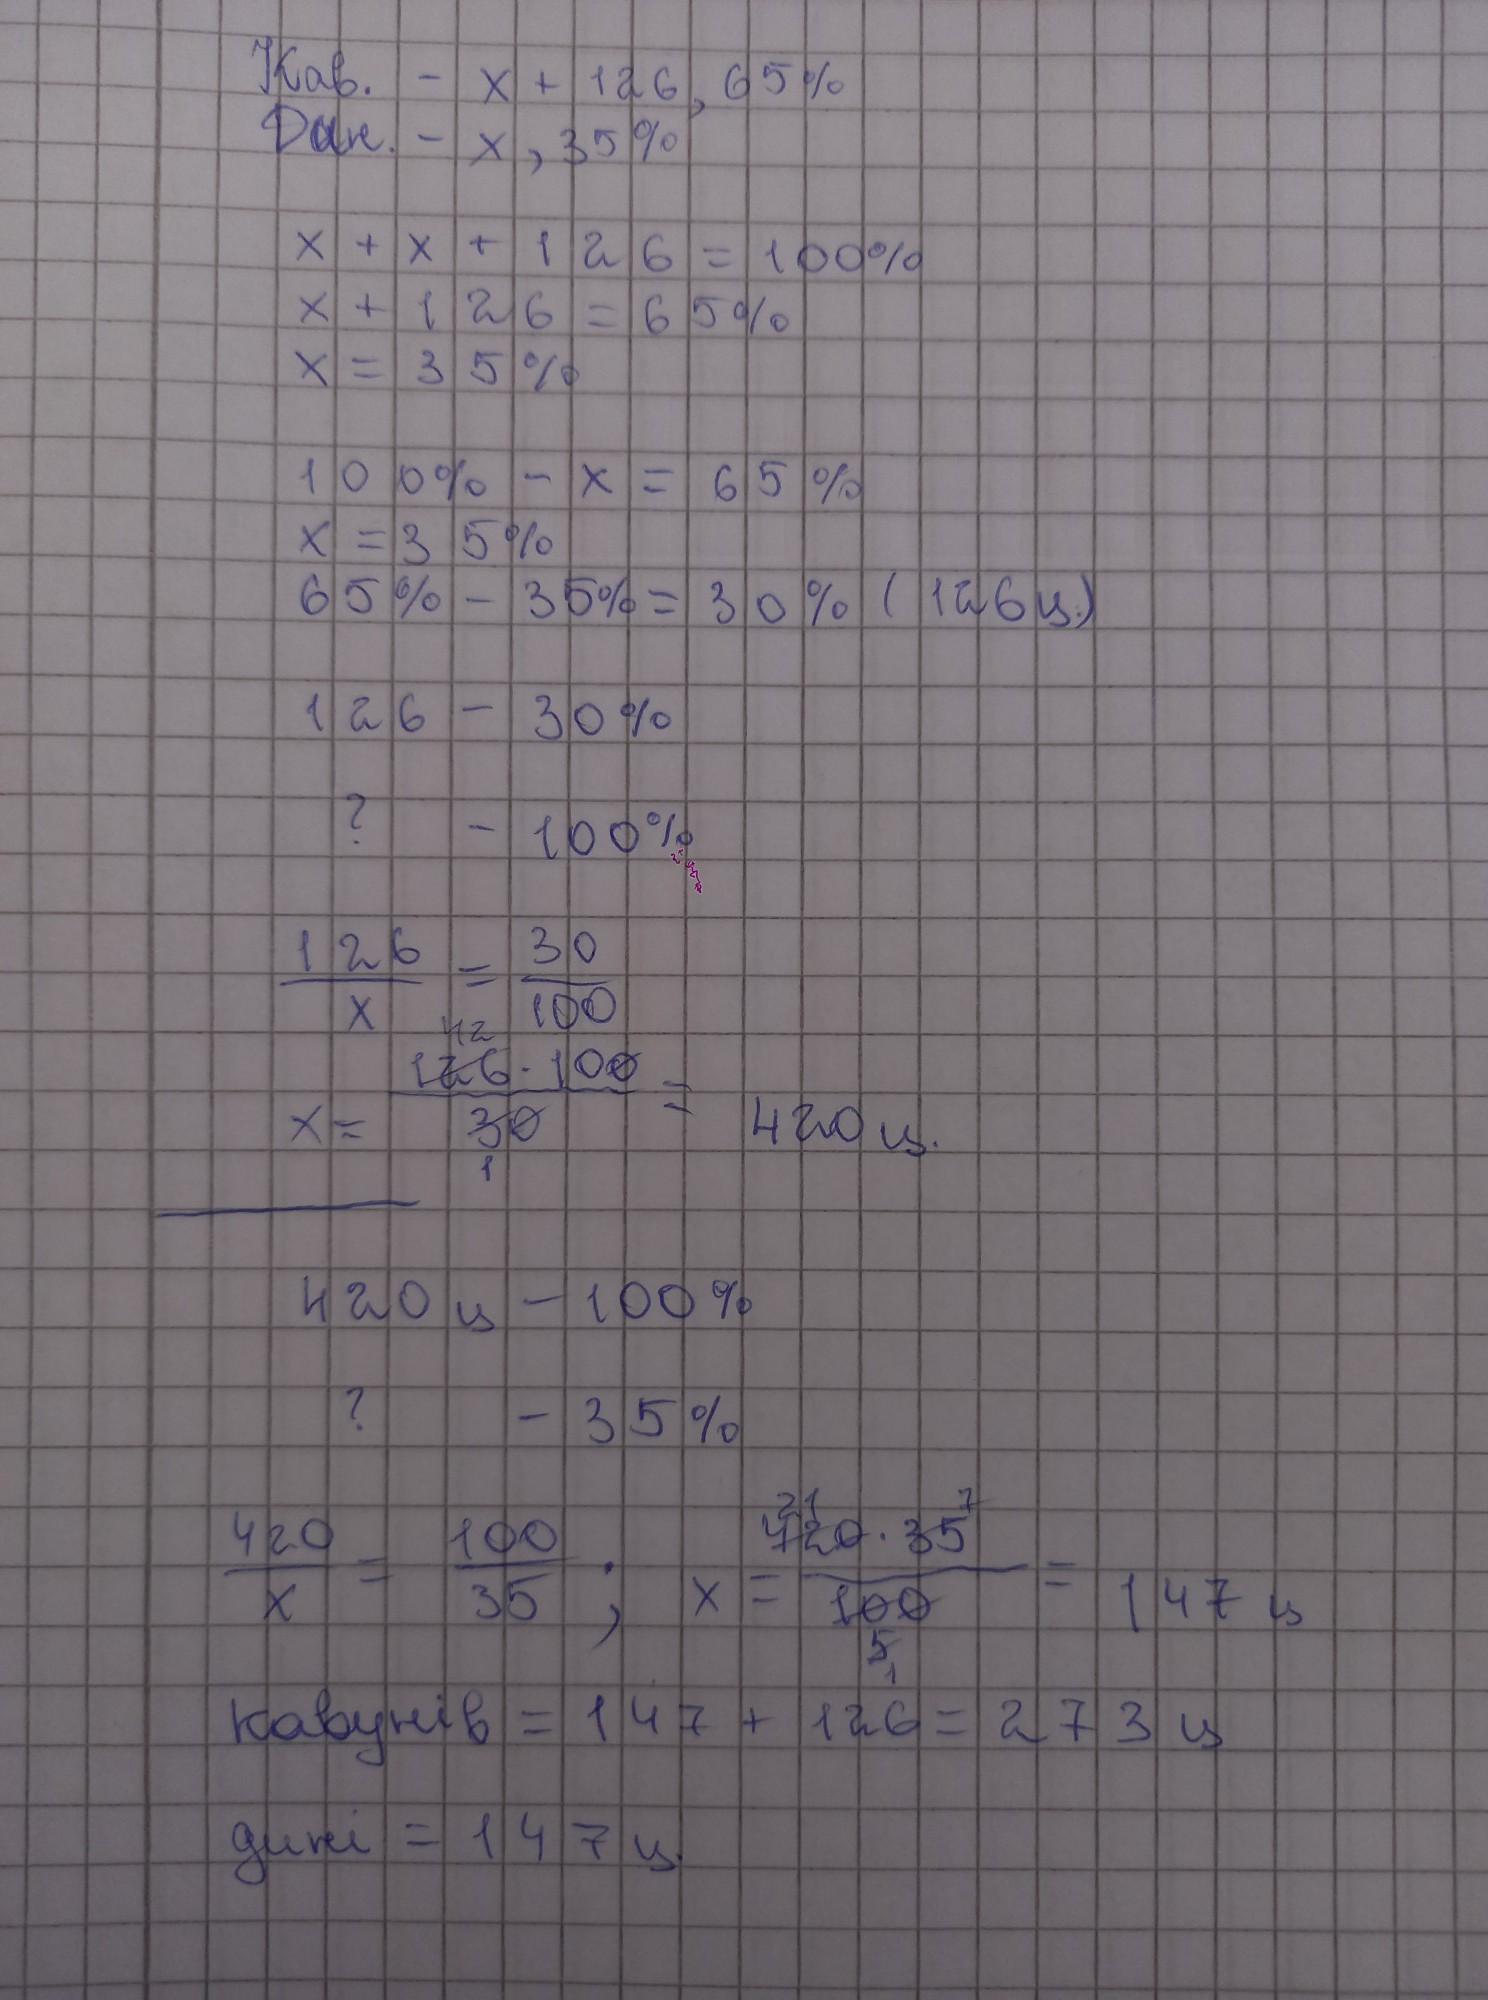 Кав. - x + 126, 65%
Дин. - x, 35%
x + x + 126 = 100%
x + 126 = 65%
x = 35%
100% - x = 65%
x = 35%
65% - 35% = 30% (126 ц.)
126 - 30%
? - 100%
126/x = 30/100
x = 126 · 100 / 30 = 420 ц.
42
1
420 ц - 100%
? - 35%
420/x = 100/35 ; x = 420 · 35 / 100 = 147 ц
21 7
5
1
кавунів = 147 + 126 = 273 ц
дині = 147 ц.